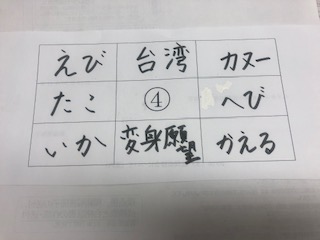 えび 台湾 カヌー
たこ ④ へび
いか 変身願望 かえる